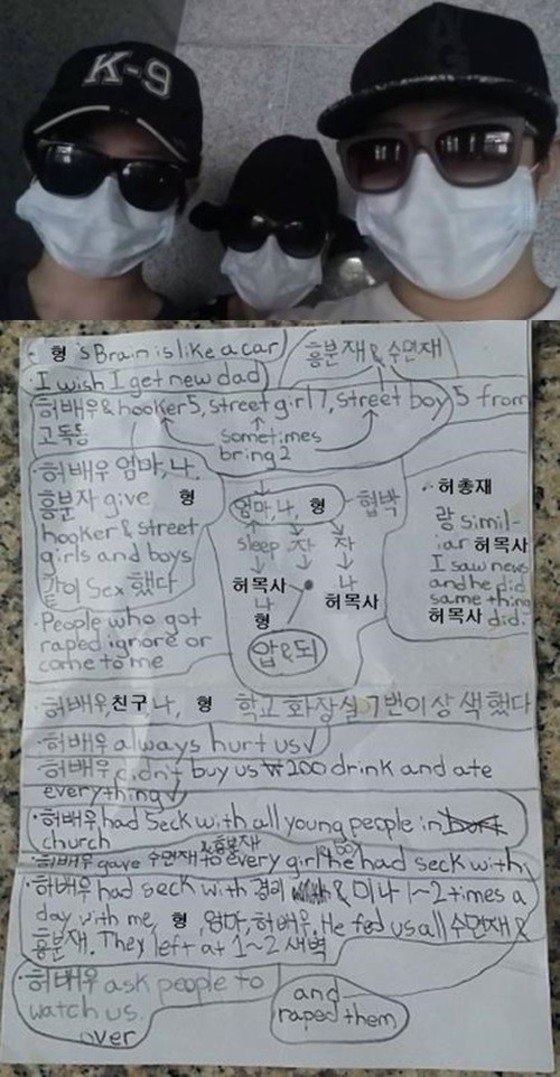 K-9
형 's Brain is like a car
흥분재 & 수면재
I wish I get new dad
허배우 & hooker 5, street girl 7, street boy 5 from
고독동
sometimes
bring 2
허배우 엄마, 나,
흥분자 give 형
hooker & street
girls and boys
같이 Sex 했다
People who got
raped ignore or
come to me
엄마, 나, 형 협박
sleep 자 자
허목사 나
나 허목사
형
압 & 되
허총재
랑 simil-
iar 허목사
I saw news
and he did
same thing
허목사 did.
허배우, 친구, 나, 형 학교 화장실 7번이상 색했다
허배우 always hurt us √
허배우 didn't buy us ₩200 drink and ate
everything √
허배우 had Seck with all young people in
church
& 흥분재
허배우 gave 수면재 to every girl he had seck with
허배우 had seck with 경리 & 미나 1~2 times a
day with me, 형, 엄마, 허배우. He fed us all 수면재 &
흥분재. They left at 1~2 새벽
허배우 ask people to
watch us.
over
and
raped them